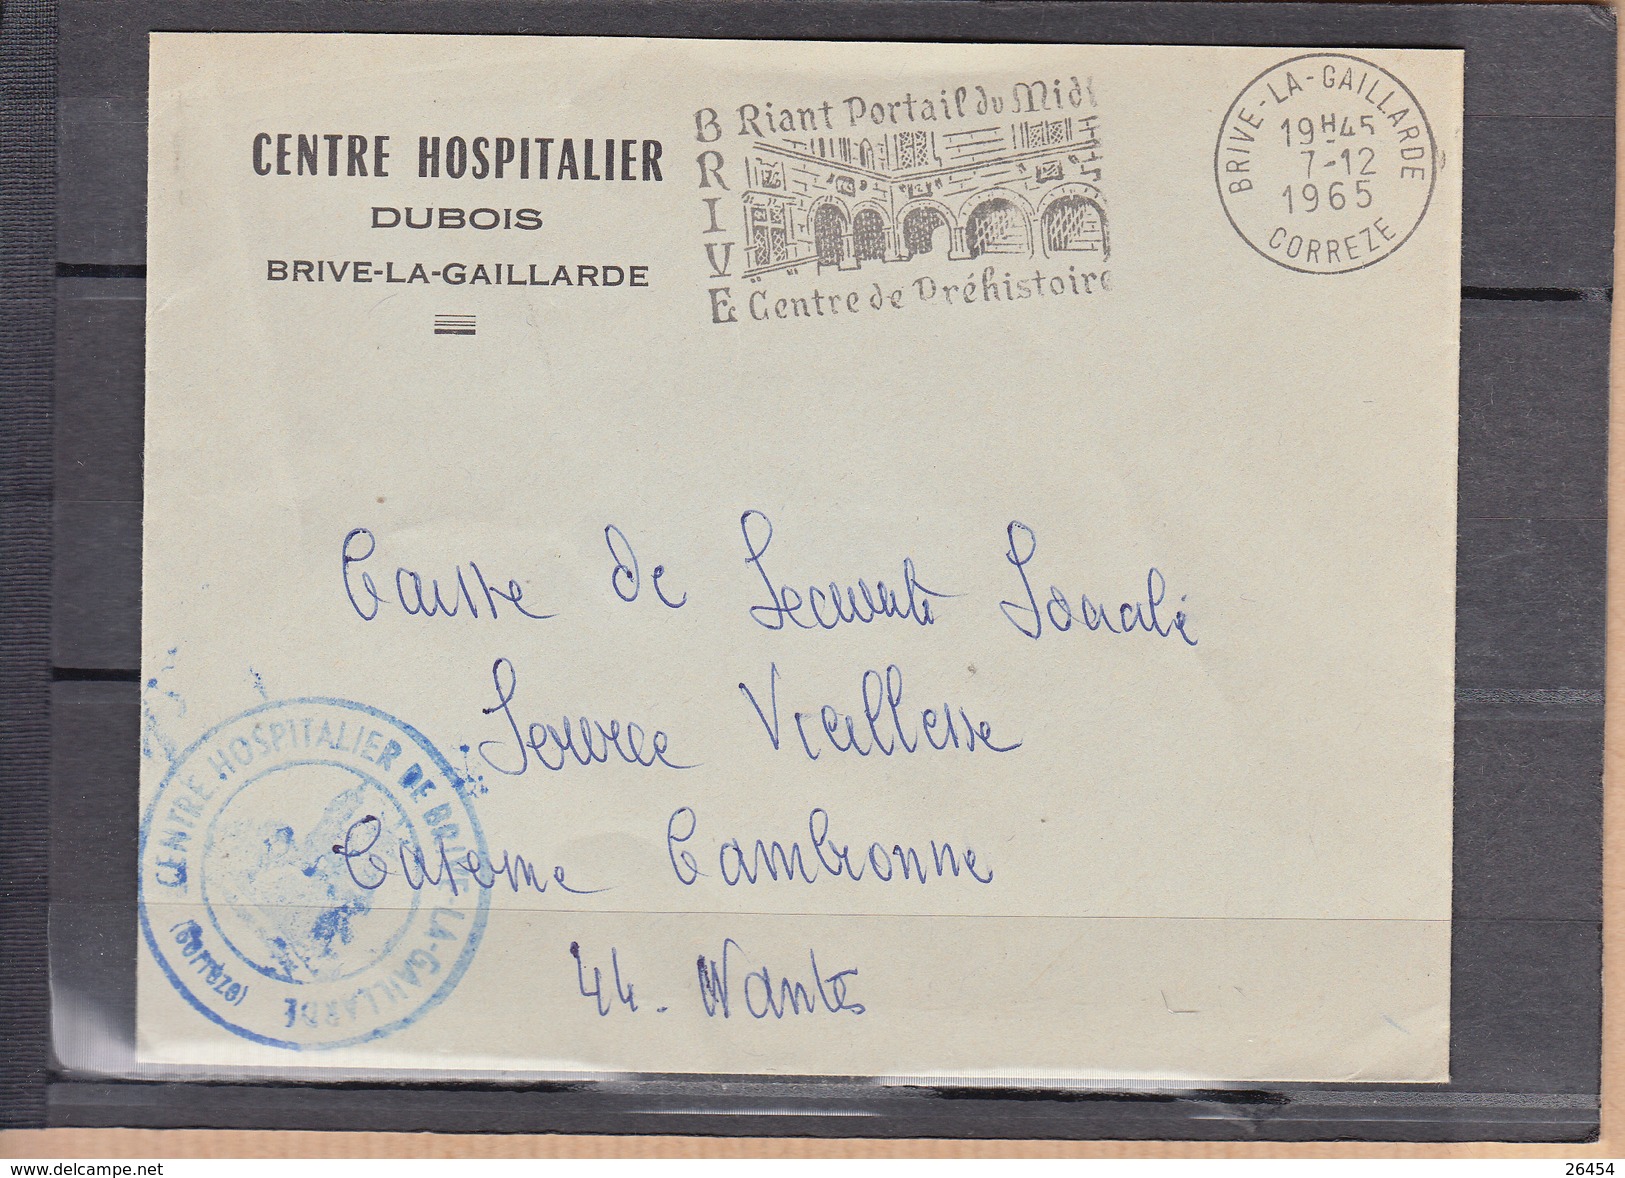 CENTRE HOSPITALIER
DUBOIS
BRIVE-LA-GAILLARDE
BRIVE
Riant Portail du Midi
Centre de Préhistoire
BRIVE-LA-GAILLARDE
19H45
7-12
1965
CORREZE
Caisse de Sécurité Sociale
Service Vieillesse
Caserne Cambronne
44. Nantes
CENTRE HOSPITALIER DE BRIVE-LA-GAILLARDE
(Corrèze)
www.delcampe.net
Marcel75
26454